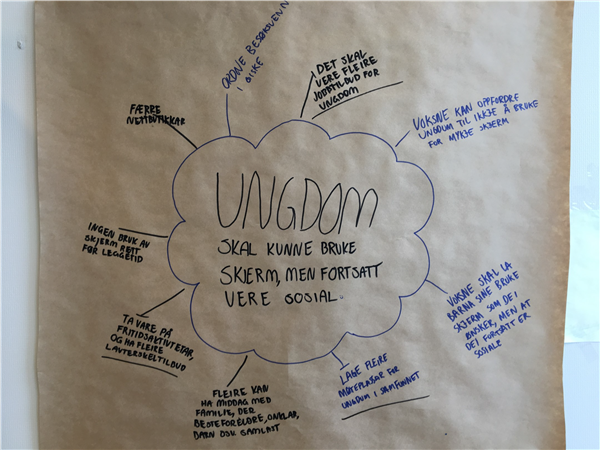 UNGDOM
SKAL KUNNE BRUKE
SKJERM, MEN FORTSATT
VERE SOSIAL.
ORDNE BESØKSVENN
I GISKE
DET SKAL
VERE FLEIRE
JOBBTILBUD FOR
UNGDOM
VOKSNE KAN OPPFORDRE
UNGDUM TIL IKKJE Å BRUKE
FOR MYKJE SKJERM
VOKSNE SKAL LA
BARNA SINE BRUKE
SKJERM SOM DEI
ØNSKER, MEN AT
DEI FORTSATT ER
SOSIALE
LAGE FLEIRE
MØTEPLASSAR FOR
UNGDUM I SAMFUNNET
FLEIRE KAN
HA MIDDAG MED
FAMILIE, DER
BESTEFORELDRE, ONKLAR,
BARN OSV. SAMLAST
TA VARE PÅ
FRITIDSAKTIVITETAR,
OG HA FLEIRE
LAVTERSKELTILBUD
INGEN BRUK AV
SKJERM RETT
FØR LEGGETID
FÆRRE
NETTBUTIKKAR